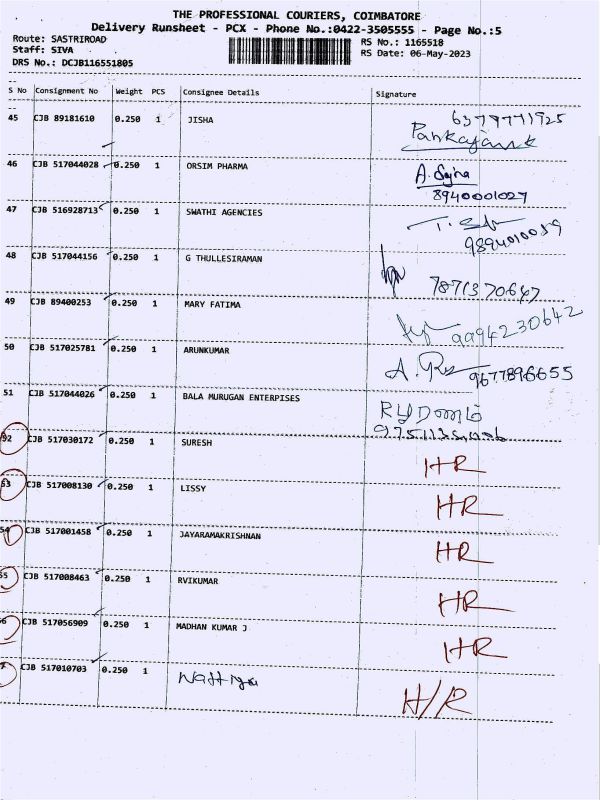 THE PROFESSIONAL COURIERS, COIMBATORE
Delivery Runsheet - PCX - Phone No.:0422-3505555 - Page No.:5
Route: SASTRIROAD RS No.: 1165518
Staff: SIVA RS Date: 06-May-2023
DRS No.: DCJB116551805
S No Consignment No Weight PCS Consignee Details Signature
45 CJB 89181610 0.250 1 JISHA 6379771925
46 CJB 517044028 0.250 1 ORSIM PHARMA
8940001027
47 CJB 516928713 0.250 1 SWATHI AGENCIES
9894010059
48 CJB 517044156 0.250 1 G THULLESIRAMAN 7871370647
49 CJB 89400253 0.250 1 MARY FATIMA
50 CJB 517025781 0.250 1 ARUNKUMAR 9677896655
51 CJB 517044026 0.250 1 BALA MURUGAN ENTERPISES
52 CJB 517030172 0.250 1 SURESH HR
53 CJB 517008130 0.250 1 LISSY HR
54 CJB 517001458 0.250 1 JAYARAMAKRISHNAN HR
55 CJB 517008463 0.250 1 RVIKUMAR HR
6 CJB 517056909 0.250 1 MADHAN KUMAR J HR
7 CJB 517010703 0.250 1 H/R